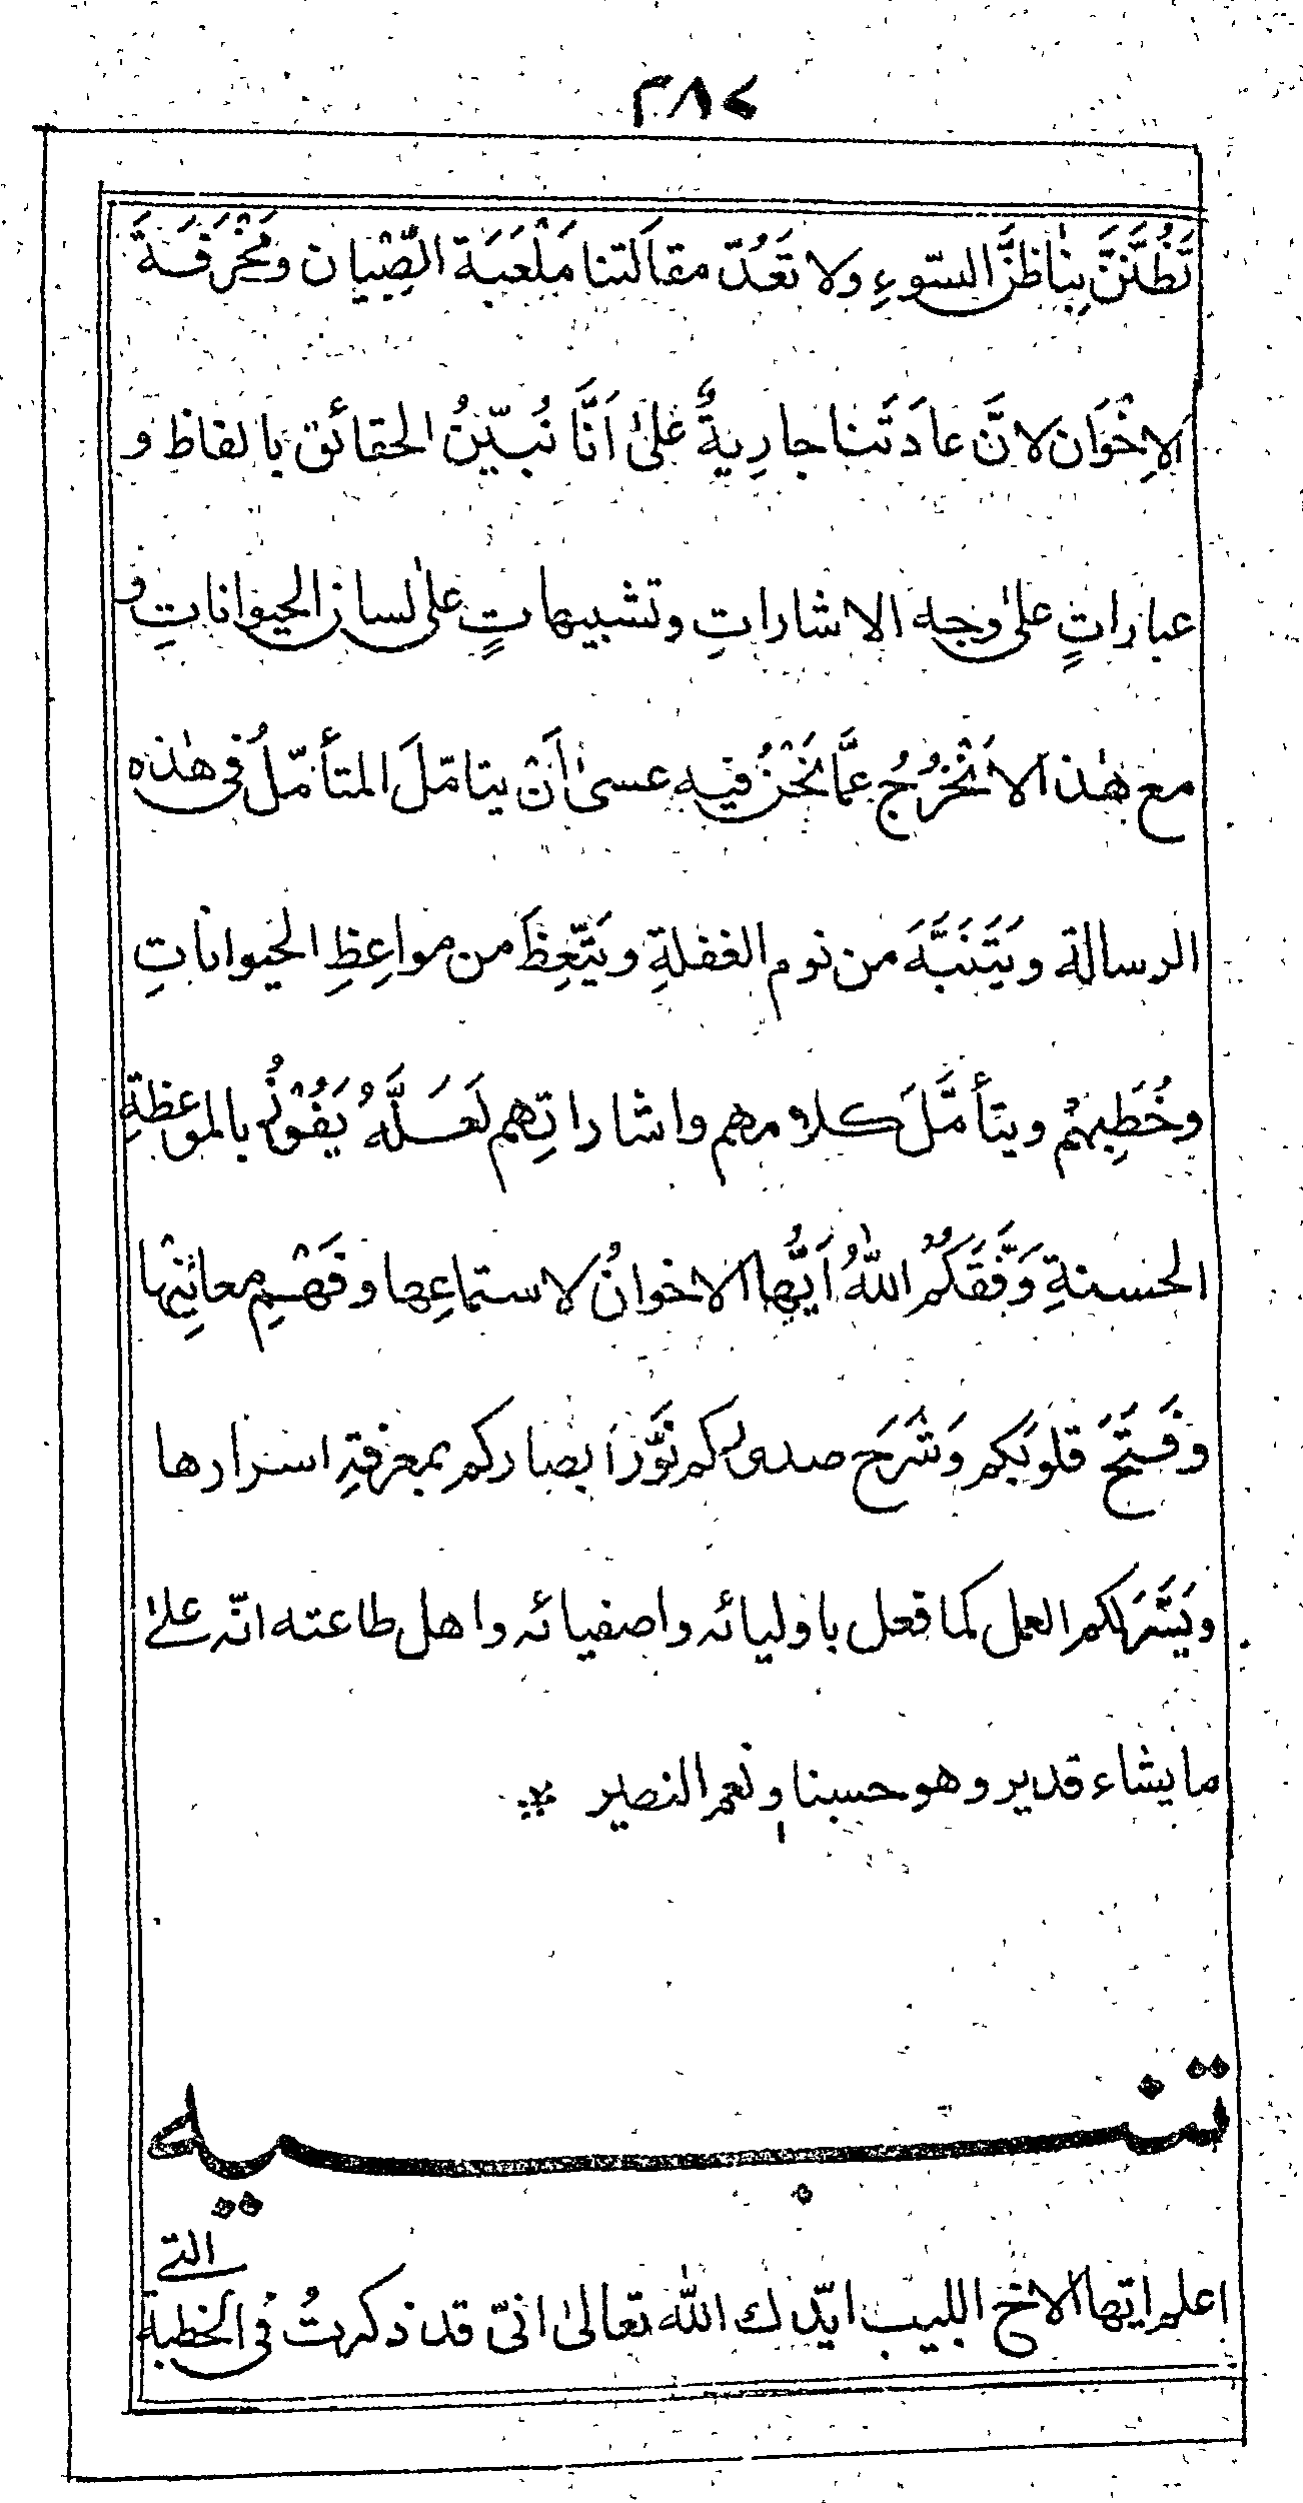 ٣٨٧
تَظُنَّنَّ بِنا ظَنَّ السّوءِ ولا تَعُدّ مقالَتنا مَلْعَبَة الصِّبْيان ومَخْرَفَةَ
الاِخْوَان لانَّ عادَتَنا جارِيةٌ علىٰ اَنَّا نُبيّنُ الحقائق بالفاظ و
عباراتٍ علىٰ وجه الاشاراتِ وتشبيهاتٍ علىٰ لسان الحيواناتِ و
مع هٰذا لا نَخْرُجُ عمَّا نَحْنُ فيه عسىٰ اَنْ يتامّلَ المتأمّلُ فى هٰذه
الرسالة ويَتَنَبَّهَ من نوم الغفلةِ ويَتَّعِظَ من مواعِظِ الحيواناتِ
وخُطَبِهِمْ ويتأمَّلَ كلامهم واشاراتِهم لَعَلَّهُ يَفُوْزُ بالموعظةِ
الحسنةِ وَفَّقَكُمُ اللّٰهُ اَيُّها الاخوانُ لاستماعِها وفَهْمِ معانيْها
وفَتَحَ قلوبَكم وَشَرَحَ صدوركم نَوَّرَ ابصاركم بمعرفةِ اسرارها
ويَسَّرَ لكم العمل كما فعل باوليائه واصفيائه واهل طاعته انّه علىٰ
ما يشاء قدير وهو حسبنا ونعم النصير
تنبيه
التى
اعلم ايّها الاخ اللبيب ايّدك اللّٰه تعالىٰ انّى قد ذكرتُ فى الخطبة